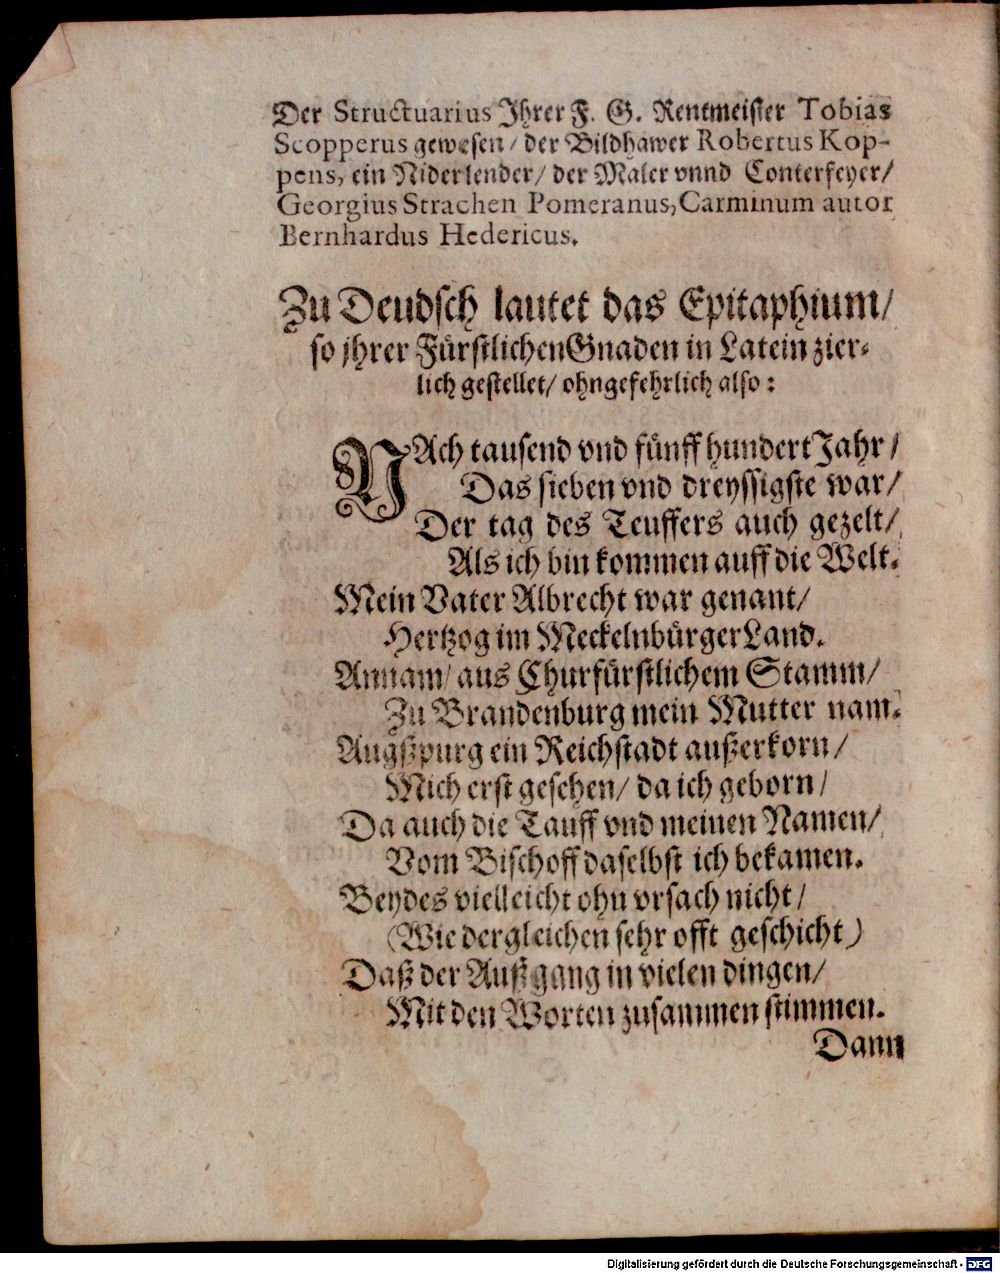 Der Structuarius Jhrer F. G. Rentmeister Tobias
Scopperus gewesen / der Bildhawer Robertus Kop-
pens, ein Niderlender / der Maler vnnd Conterfeyer /
Georgius Strachen Pomeranus, Carminum autor
Bernhardus Hedericus.
Zu Deudsch lautet das Epitaphium /
so jhrer Fürstlichen Gnaden in Latein zier-
lich gestellet / ohngefehrlich also:
NAch tausend vnd fünff hundert Jahr /
Das sieben vnd dreyssigste war /
Der tag des Teuffers auch gezelt /
Als ich bin kommen auff die Welt.
Mein Vater Albrecht war genant /
Hertzog im Meckelnbürger Land.
Annam / aus Churfürstlichem Stamm /
Zu Brandenburg mein Mutter nam.
Augßpurg ein Reichstadt außerkorn /
Mich erst gesehen / da ich geborn /
Da auch die Tauff vnd meinen Namen /
Vom Bischoff daselbst ich bekamen.
Beydes vielleicht ohn vrsach nicht /
(Wie dergleichen sehr offt geschicht)
Daß der Außgang in vielen dingen /
Mit den Worten zusammen stimmen.
Dann
Digitalisierung gefördert durch die Deutsche Forschungsgemeinschaft - DFG